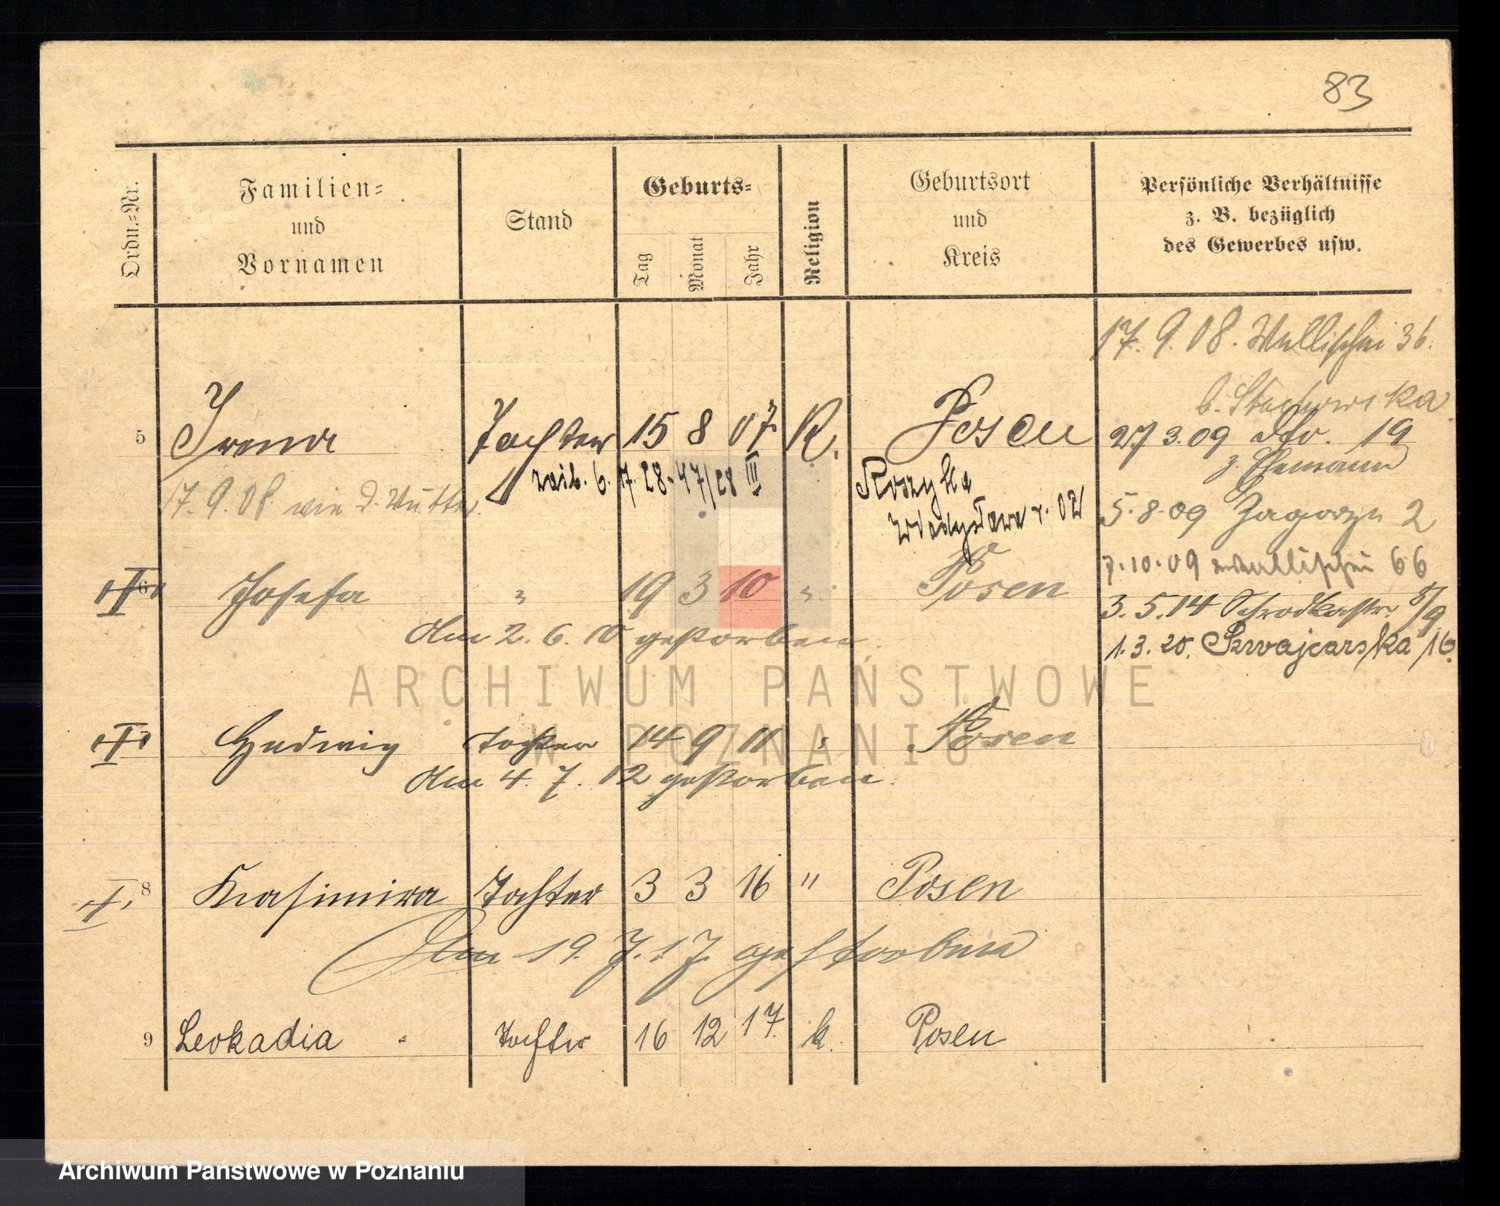 83
Ordn.-Nr.
Familien-
und
Vornamen
Stand
Geburts-
Tag
Monat
Jahr
Religion
Geburtsort
und
Kreis
Persönliche Verhältnisse
z. B. bezüglich
des Gewerbes usw.
17. 9. 08. Wallischei 36.
b. Stachowska
5 Irena Tochter 15 8 07. K. Posen
27 3. 09 do. 19
z. Ehemann
17. 9. 08 wie d. Mutter.
6. 7. 28 - 47/28 III
Władysława r. 02
5. 8. 09 Zagorze 2
7. 10. 09 Wallischei 66
6 Josefa " 19 3 10 " Posen
3. 5. 14 Schrodkastr 8/9
Am 2. 6. 10 gestorben.
1. 3. 20. Szwajcarska 16.
ARCHIWUM PAŃSTWOWE
W POZNANIU
Hedwig Tochter 14 9 11 " Posen
Am 4. 7. 12 gestorben.
8 Kasimira Tochter 3 3 16 " Posen
Am 19. 7. 17. gestorben
9 Leokadia " Tochter 16 12 17. k. Posen
Archiwum Państwowe w Poznaniu